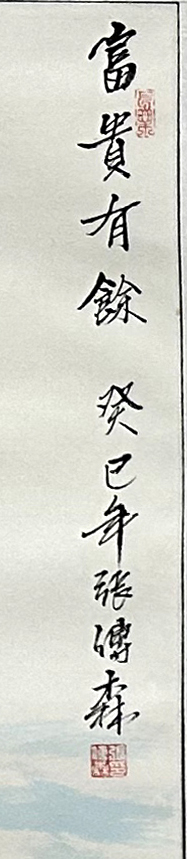 富貴有餘 癸巳年張傳森